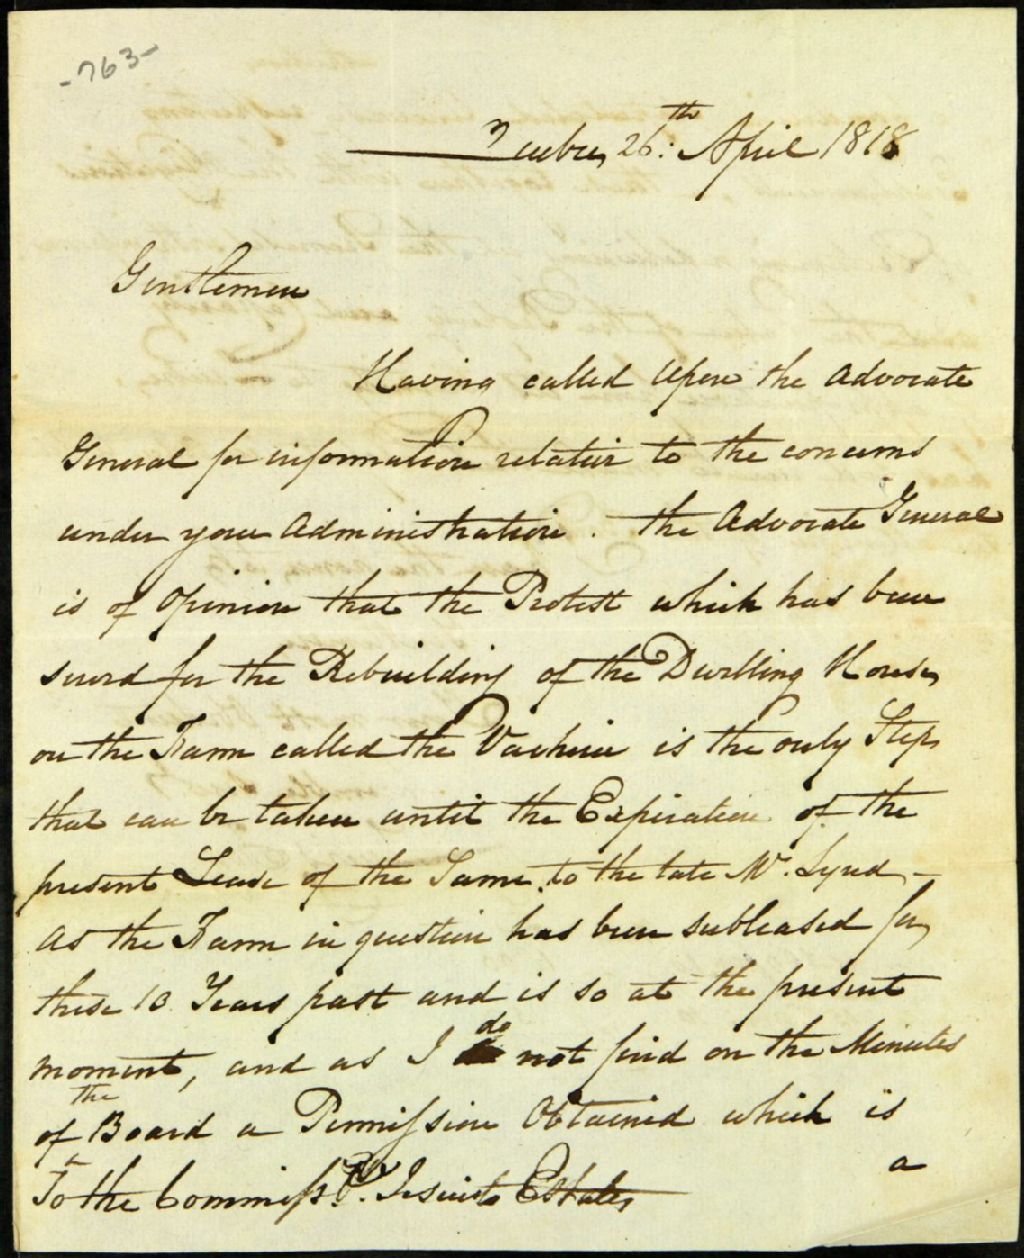 -763-
Quebec, 26th April 1818
Gentlemen
Having called upon the Advocate
General for information relative to the concerns
under your Administration. the Advocate General
is of Opinion that the Protest which has been
served for the Rebuilding of the Dwelling House,
on the Farm called the Vacherie is the only Step,
that can be taken until the Expiration of the
present Lease of the Same, to the late Mr. Lynd,-
As the Farm in question has been subleased for,
these 10 Years past and is so at the present
moment, and as I do not find on the Minutes
of the Board a Permission Obtained which is
a
To the Commiss. Jesuits Estates,